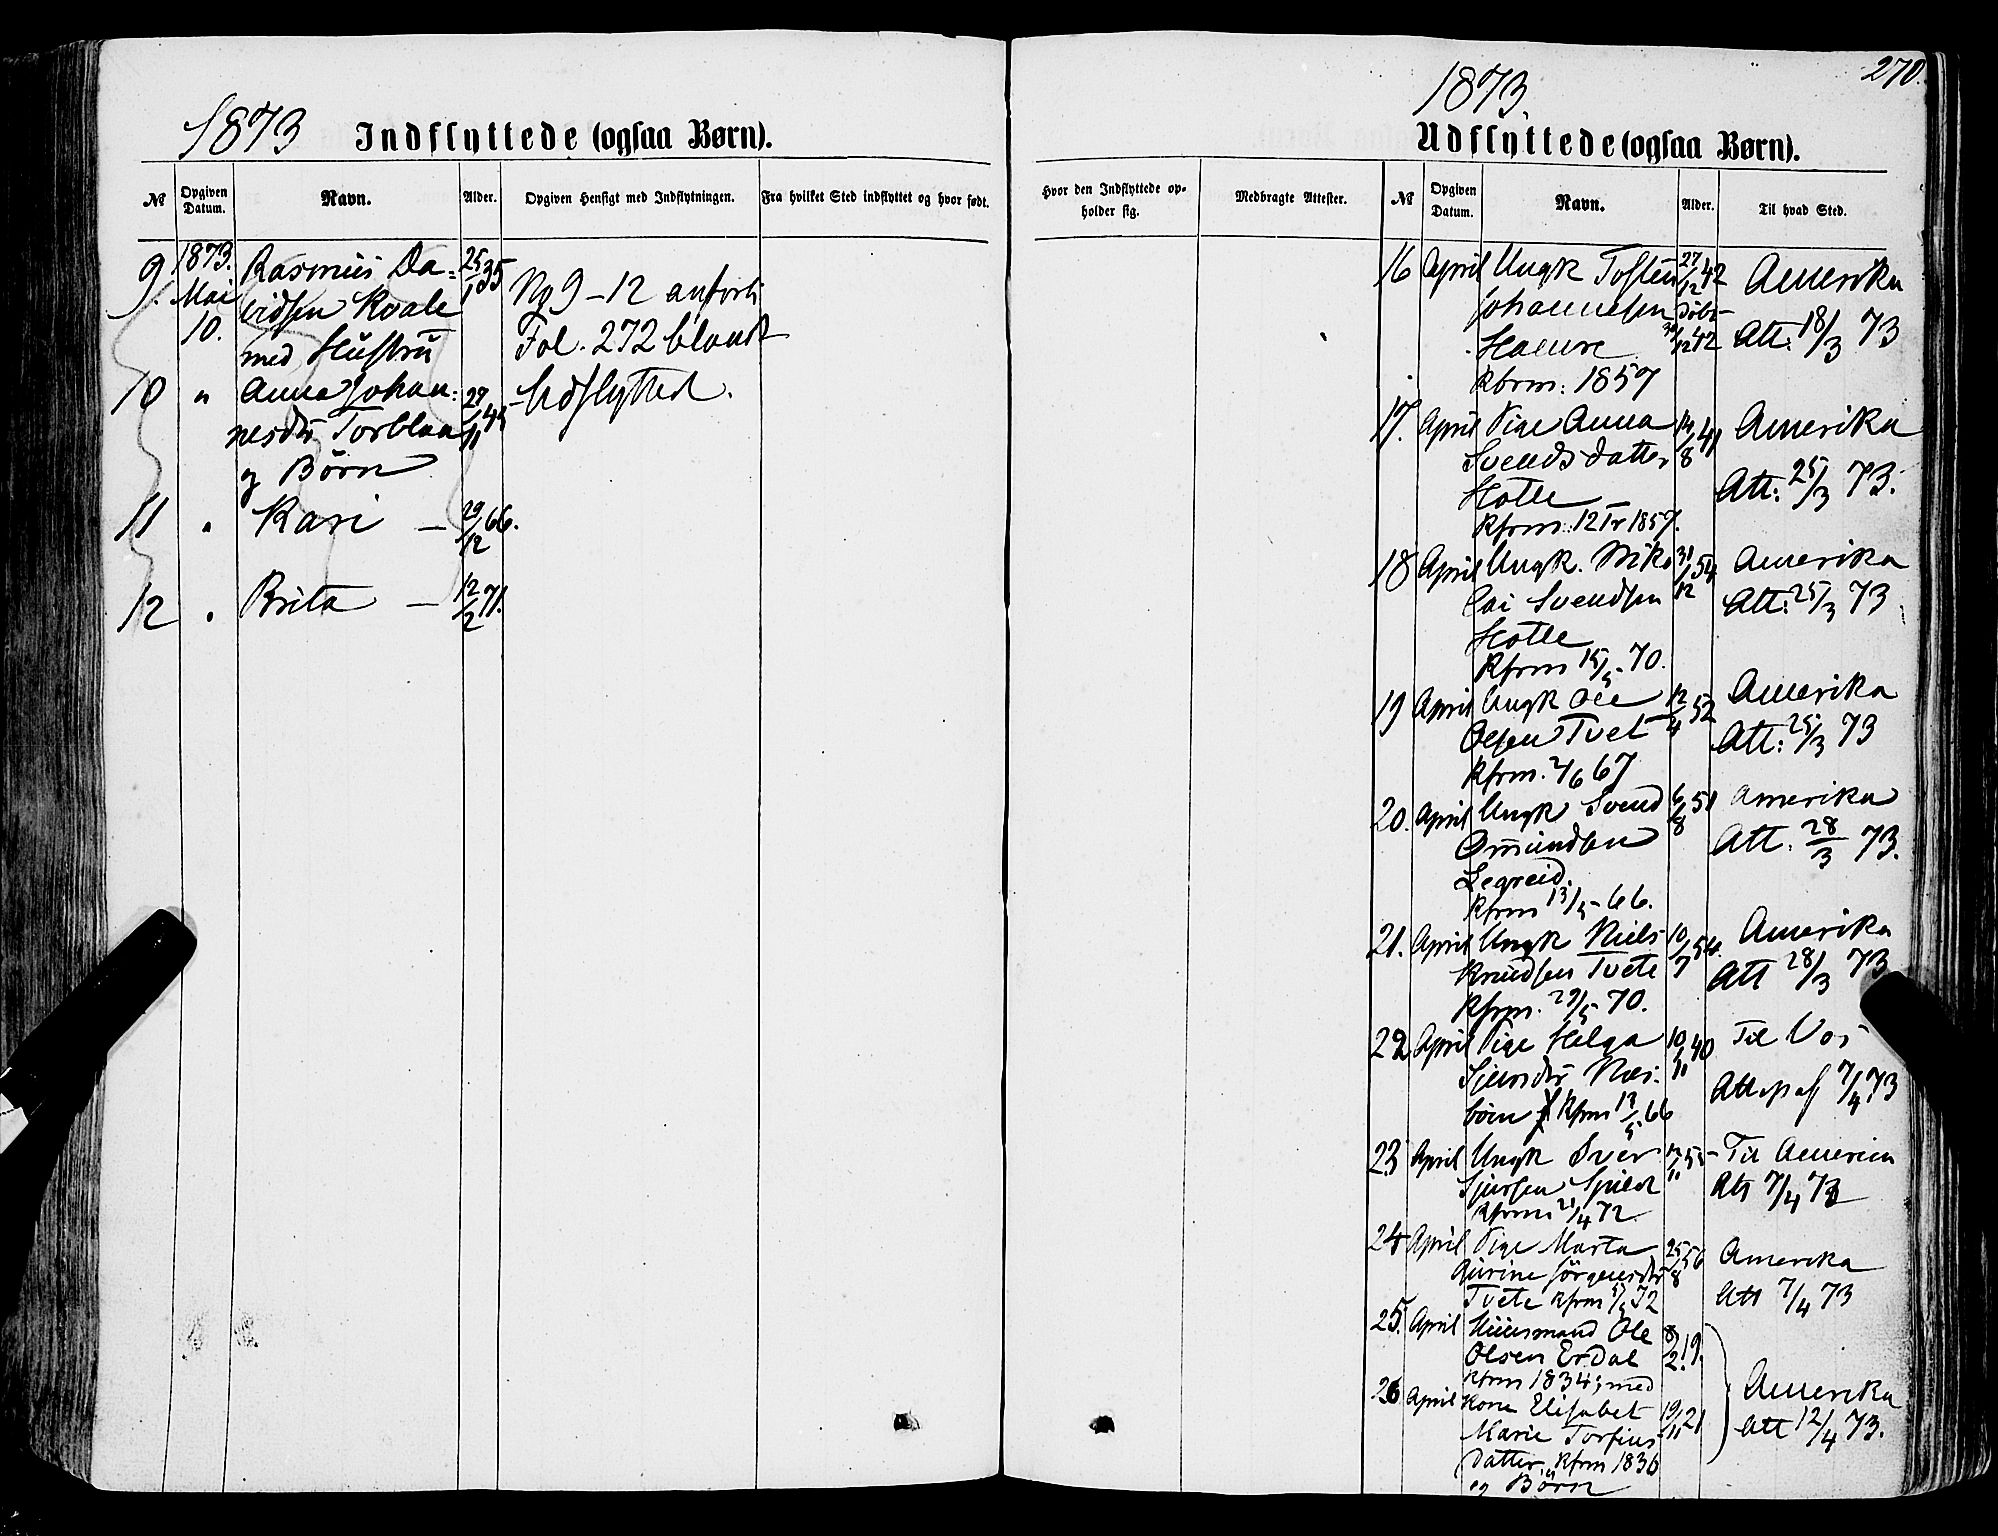 1873
Indflyttede (ogsaa Børn).
№
Opgiven Datum.
Navn.
Alder.
Opgiven Hensigt med Indflytningen.
Fra hvilket Sted indflyttet og hvor født.
9. 1873. Mai 10. Rasmus Da= 25/1 35
vidsen Kvale
med Hustru
10 " Anna Johan= 27/11 45
nesdtr Torblaa
og Børn
11 " Kari — 29/12 66.
12 " Brita — 12/2 71.
No 9-12 anført
Fol. 272 blandt
Udflytted.
1873.
270.
Udflyttede (ogsaa Børn).
Hvor den Indflyttede opholder sig.
Medbragte Attester.
№
Opgiven Datum.
Navn.
Alder.
Til hvad Sted.
16 April Ungk Tosten 27/12 42 Amerika
Johannesen Døbt Att: 18/3 73
Haaeure 30/12 42
Kfrm: 1857
17. April Pige Anna 14/8 41 Amerika
Svendsdatter Att: 25/3 73.
Hotle
Kfrm: 12 Tr 1857.
18 April Ungk. Niko 31/12 54 Amerika
lai Svendsen Att: 25/3 73
Hotle
Kfrm 15/5 - 70.
19 April Ungk Ole 12/4 52 Amerika
Olsen Tvet Att: 25/3 73
Kfrm. 2/6 67
20. April Ungk Svend 6/8 51 Amerika
Omundsen Att. 28/3 73.
Legreid.
Kfrm 13/5 - 66.
21. April Ungk Niels 10/7 54. Amerika
Knudsen Tvete Att 28/3 73
Kfrm. 29/5 70.
22 April Pige Helga 10/11 40 Til Vos
Sjursdtr Næs= Att 7/4 73
bøen Kfrm 13/5 66
23 April Ungk Sver 55 Til Amerika
Sjursen Spilde Att 7/4 73
Kfrm 21/4 72
24 April Pige Marta 25/8 56 Amerika
Gurine Jørgensdtr Att 7/4 73
Tvete Kfrm 72
25. April Huusmand Ole 8/2 19.
Olsen Erdal
Kfrm 1834; med Amerika
26 April Kone Elisabet 19/11 21 Att 12/4 73.
Marie Torfins
Datter, Kfrm 1836
og Børn